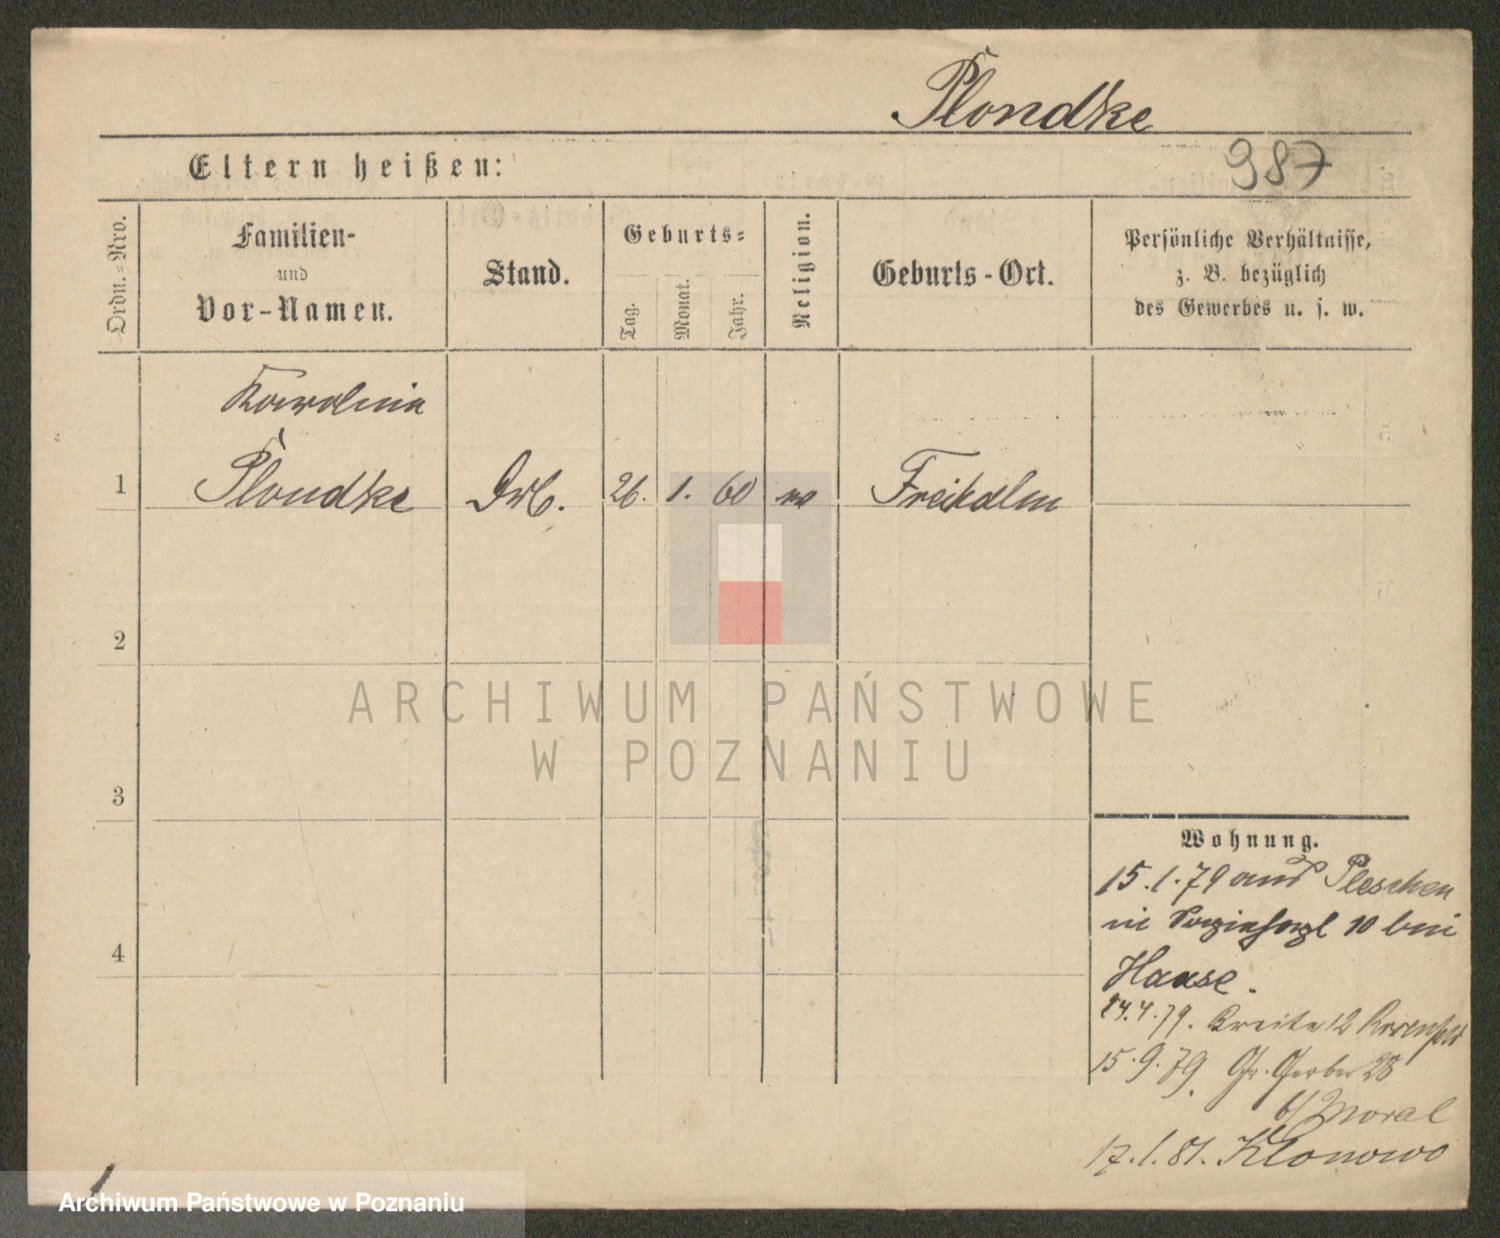 Plondke
Eltern heißen:
987
Ordn.=Nro.
Familien-
und
Vor-Namen.
Stand.
Geburts=
Tag.
Monat.
Jahr.
Religion.
Geburts-Ort.
Persönliche Verhältnisse,
z. B. bezüglich
des Gewerbes u. s. w.
Karolina
1 Plondke 26. 1. 60
2
3
4
ARCHIWUM PAŃSTWOWE
W POZNANIU
Wohnung.
15.1.79 aus Pleschen
in 10 bei
Haase.
24.4.79. Breite 12
15.9.79. Gr. Gerber 28
b/ Moral
17.1.81. Klonowo
Archiwum Państwowe w Poznaniu